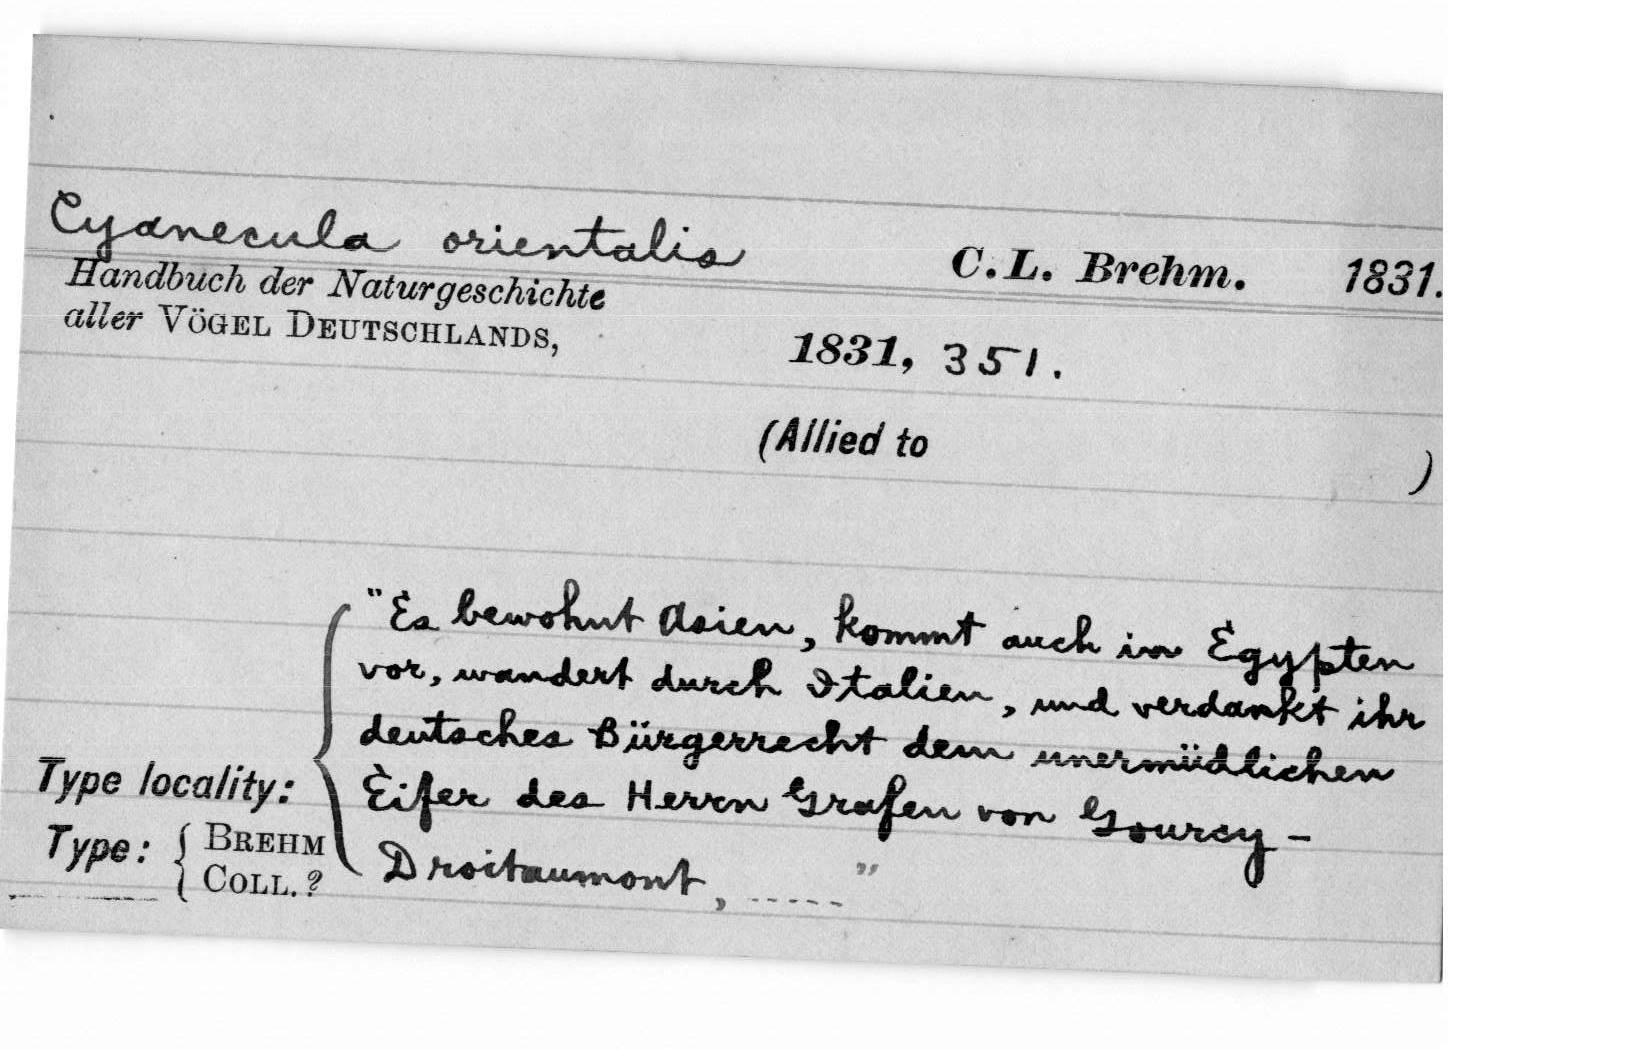 Cyanecula orientalis C. L. Brehm. 1831.
Handbuch der Naturgeschichte
aller VÖGEL DEUTSCHLANDS, 1831, 351.
(Allied to )
"Es bewohnt Asien, kommt auch in Egypten
vor, wandert durch Italien, und verdankt ihr
deutsches Bürgerrecht dem unermüdlichen
Eifer des Herrn Grafen von Gourcy-
Droitaumont, ----- "
Type locality:
Type: { BREHM
COLL. ?